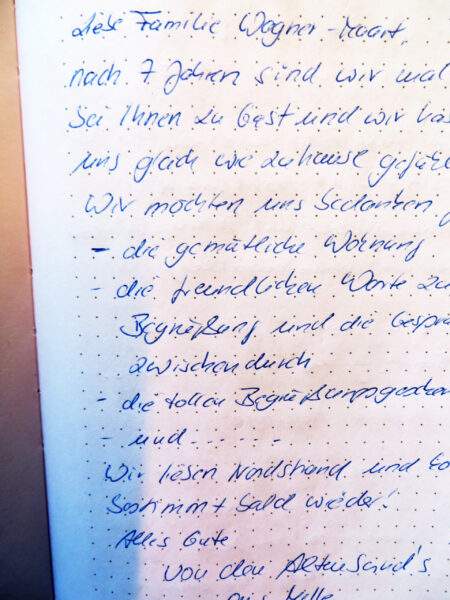 Liebe Familie Wagner-
nach 7 Jahren sind wir mal
bei Ihnen zu Gast und wir
uns gleich wie zuhause
Wir möchten uns bedanken
- die gemütliche Wohnung
- die freundlichen Worte
Begrüßung und die
zwischendurch
- die tollen
- und . . . . . .
Wir lieben Nordstrand und
bestimmt bald wieder!
Alles Gute
von den
aus